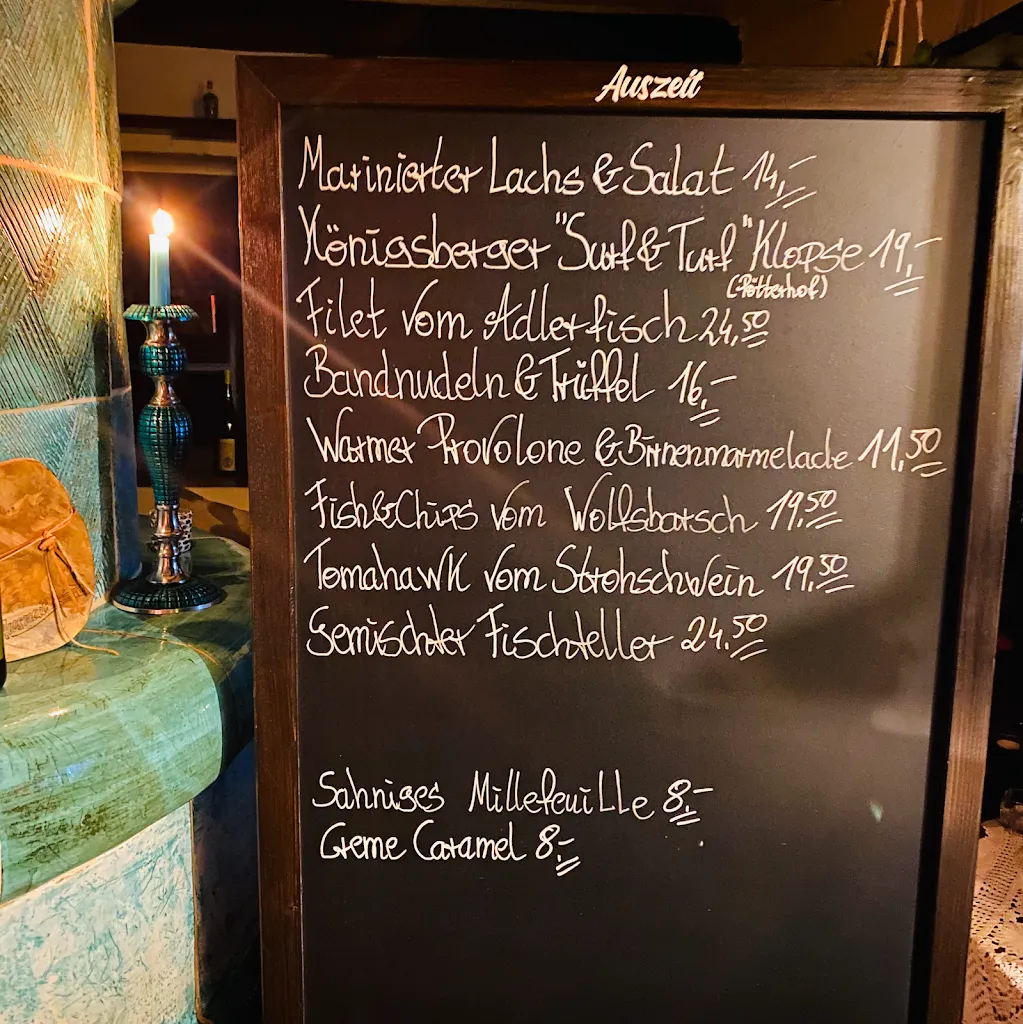 Auszeit
Marinierter Lachs & Salat 14,-
Königsberger "Surf & Turf" Klopse 19,-
(Pötterhof)
Filet vom Adlerfisch 24,50
Bandnudeln & Trüffel 16,-
Warmer Provolone & Birnenmarmelade 11,50
Fish & Chips vom Wolfsbarsch 19,50
Tomahawk vom Strohschwein 19,50
Gemischter Fischteller 24,50
Sahniges Millefeuille 8,-
Creme Caramel 8,-